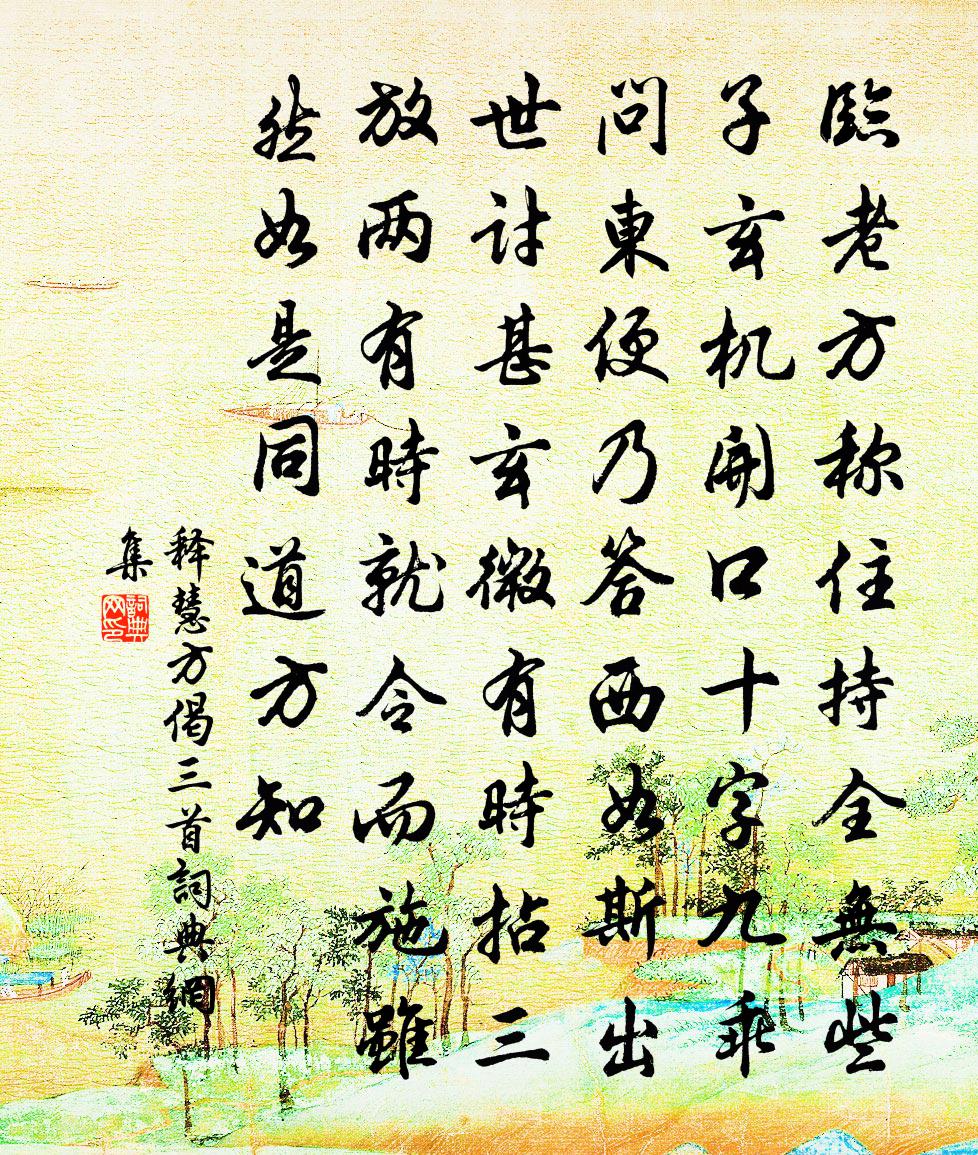 臨老方称住持全無些
子玄机開口十字九乖
問東便乃答西如斯出
世討甚玄微有時拈三
放两有時就令而施雖
然如是同道方知
释慧方偈三首詞典網
集
詞典
网印